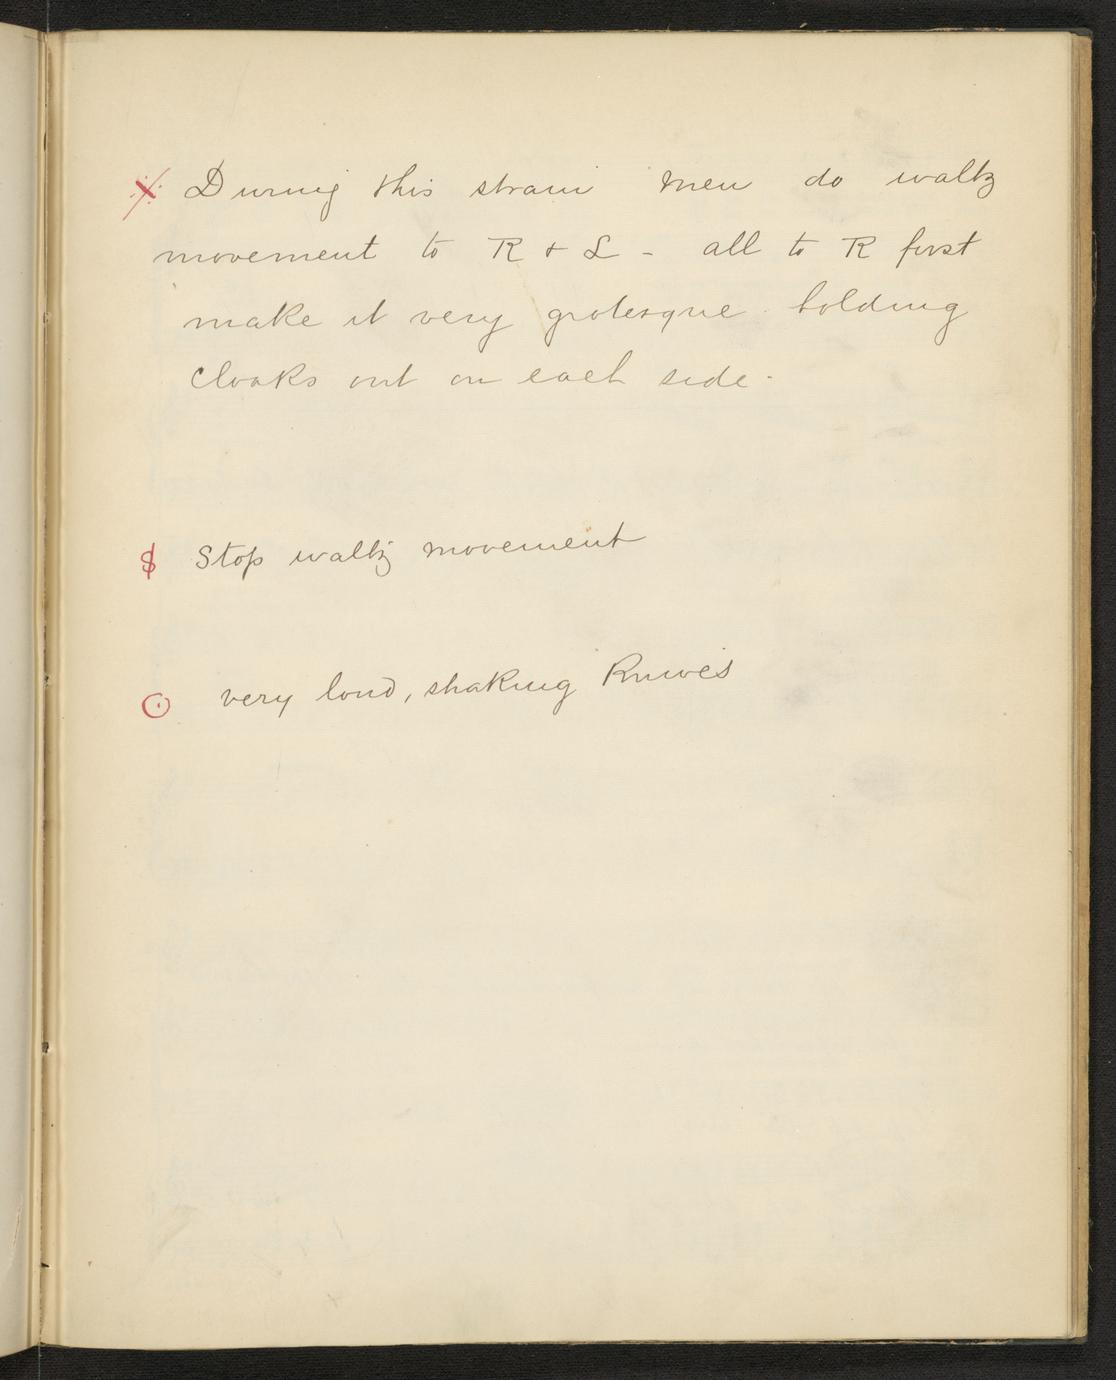 ※ During this strain men do waltz
movement to R + L - all to R first
make it very grotesque. holding
cloaks out on each side.
$ Stop waltz movement
⊙ very loud, shaking Knives